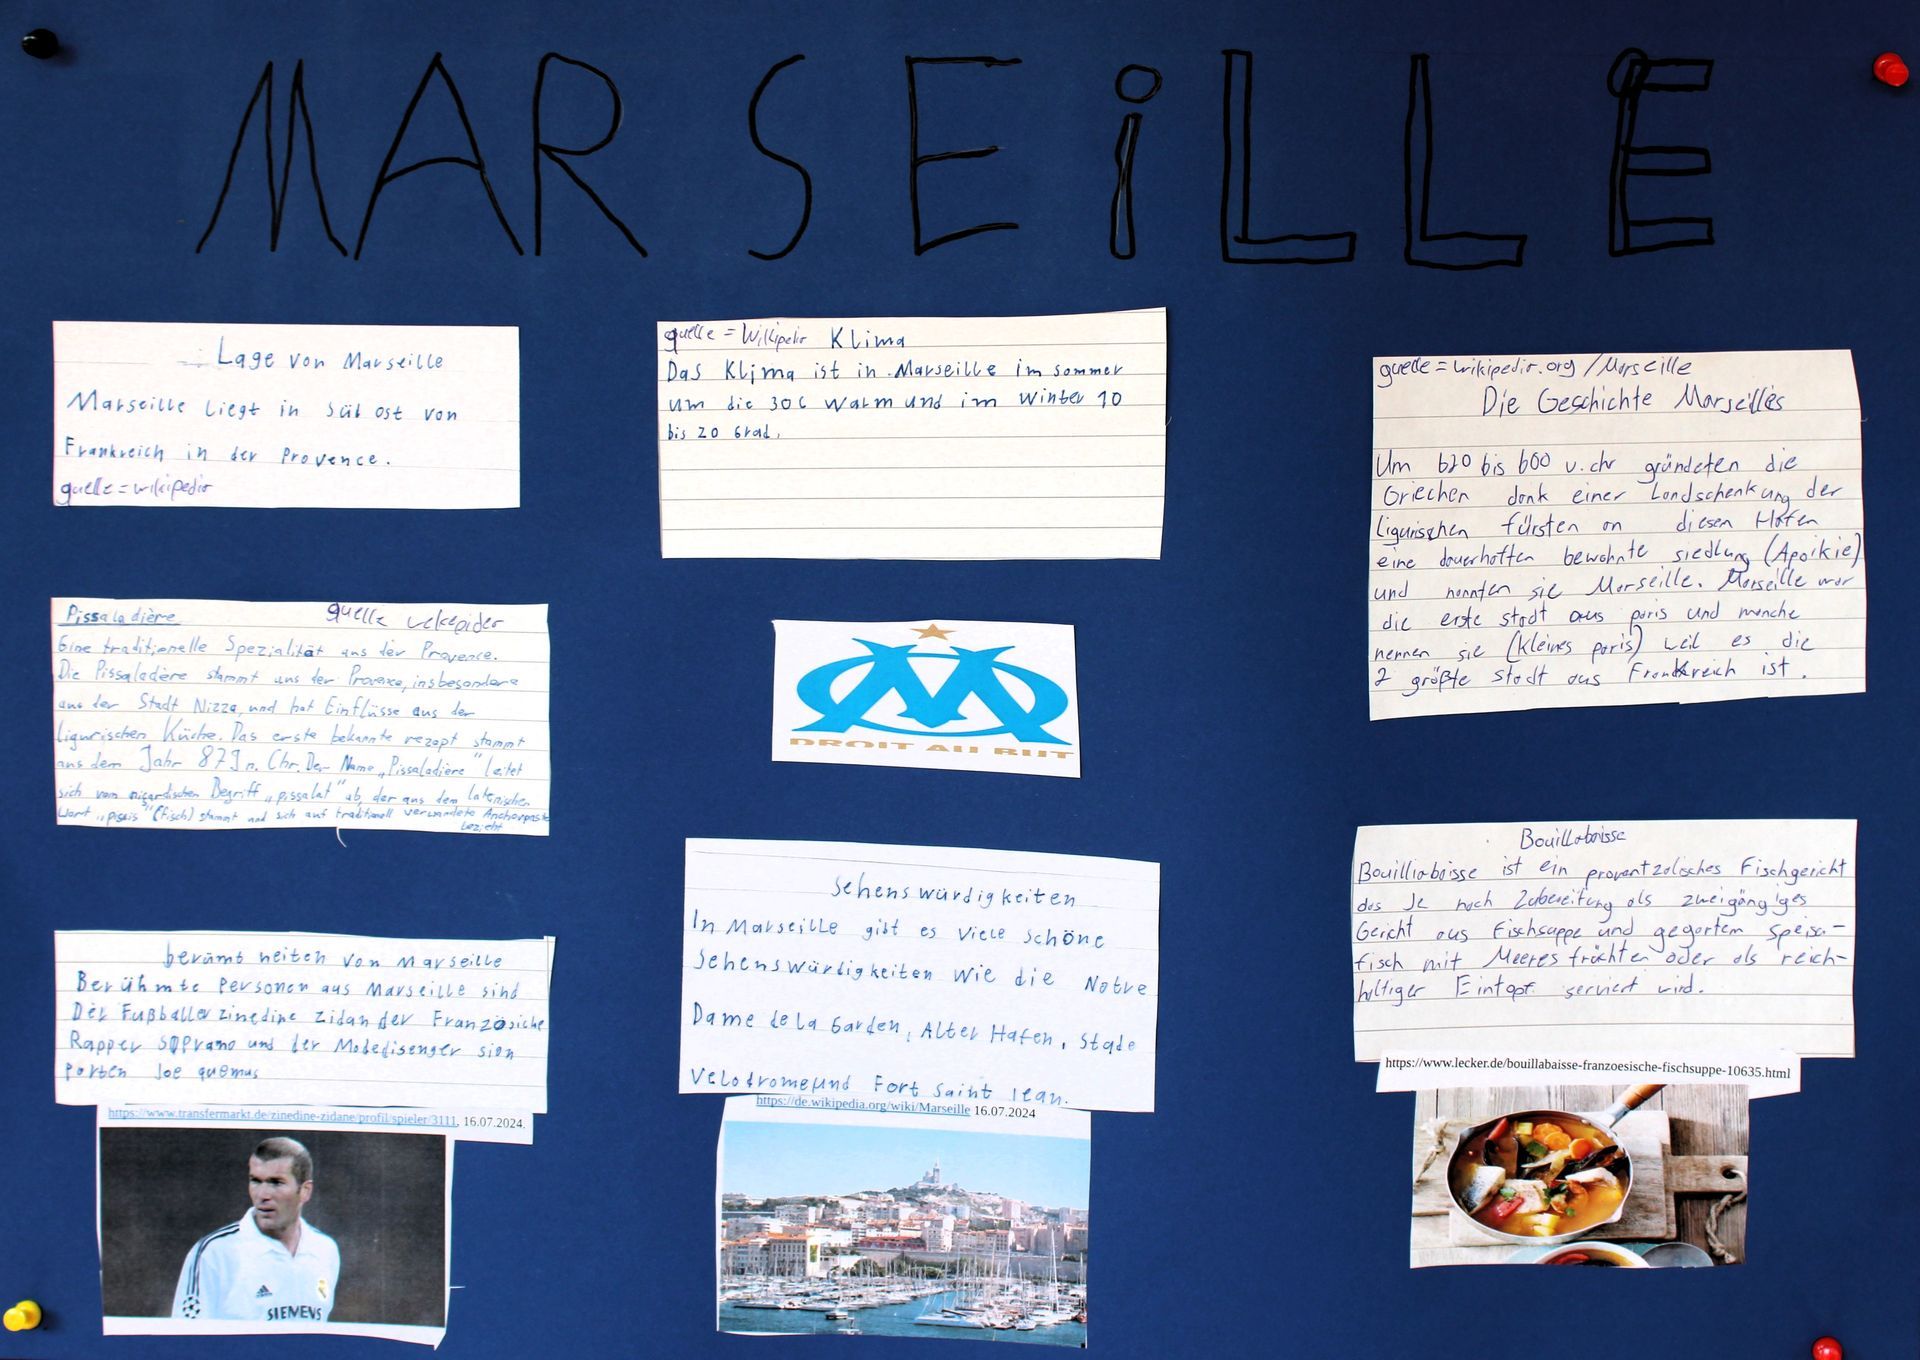 MARSEiLLE
Lage von Marseille
Marseille liegt in Süd ost von
Frankreich in der Provence.
quelle = wikipedia
Pissaladière quelle wekepider
Eine traditionelle Spezialität aus der Provence.
Die Pissaladière stammt aus der Provence, insbesondere
aus der Stadt Nizza, und hat Einflüsse aus der
ligurischen Küche. Das erste bekannte rezept stammt
aus dem Jahr 879 n. Chr. Der Name „Pissaladière" leitet
sich vom Begriff „pissalat" ab, der aus dem latenischen
Wort „piscis" (fisch) stammt und sich auf traditionell verwandete Anchovpaste
bezieht
berümt heiten von Marseille
Berühmte Personen aus Marseille sind
Der Fußballer zinedine zidan der Französiche
Rapper soprano und der Modedisenger sion
porten Joe quemus
https://www.transfermarkt.de/zinedine-zidane/profil/spieler/3111, 16.07.2024.
SIEMENS
quelle = Wilkipedir Klima
Das Klima ist in Marseille im sommer
um die 30C warm und im Winter 10
bis 20 Grad.
DROIT AU BUT
Sehenswürdigkeiten
In Marseille gibt es viele schöne
Sehenswürdigkeiten wie die Notre
Dame de la Garden, Alter Hafen, Stade
Velodrome und Fort Saint Jean.
https://de.wikipedia.org/wiki/Marseille 16.07.2024
quelle = wikipedia.org / Marseille
Die Geschichte Marseilles
Um 620 bis 600 v. chr gründeten die
Griechen dank einer Landschenkung der
ligurischen fürsten an diesen Hafen
eine dauerhaften bewohnte siedlung (Apoikie)
und nannten sie Marseille. Marseille war
die erste stadt aus paris und manche
nennen sie (kleines paris) weil es die
2 größte stadt aus Frankreich ist.
Bouillabaisse
Bouilliabaisse ist ein proventzalisches Fischgericht
das Je nach Zubereitung als zweigängiges
Gericht aus Fischsuppe und gegartem Speise-
fisch mit Meeresfrüchten oder als reich-
haltiger Eintopf serviert wird.
https://www.lecker.de/bouillabaisse-franzoesische-fischsuppe-10635.html